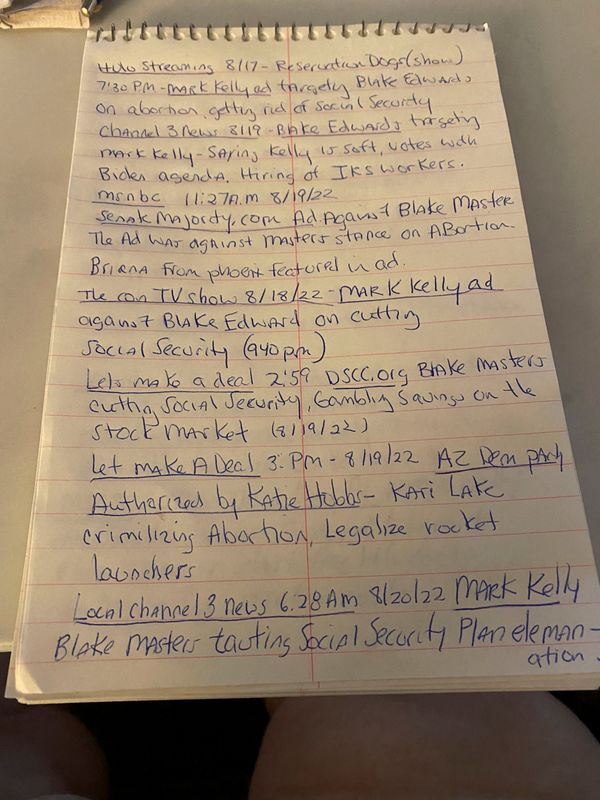 Hulo Streaming 8/17 - Reservation Dogs (show)
7:30 PM - mark Kelly ad targety Blake Edwards
on abortion, getting rid of Social Security
Channel 3 news 8/19 - Blake Edwards targeting
mark Kelly - Saying Kelly is soft, votes with
Biden agenda, Hiring of IRS workers.
msnbc 11:27 A.m 8/19/22
Senate majority.com Ad Against Blake Master
The Ad was against masters stance on Abortion.
Briana from phoenix featured in ad.
The con TV show 8/18/22 - MARK Kelly ad
against Blake Edward on cutting
Social Security (940 pm)
Lets make a deal 2:59 DSCC.org Blake masters
cutting Social Security, Gambling Savings on the
Stock market (8/19/22)
Let make A Deal 3: PM - 8/19/22 AZ Dem party
Autharized by Katie Hobbs - Kari Lake
crimilizing Abortion, Legalize rocket
launchers
Local channel 3 news 6:28 Am 8/20/22 MARK Kelly
Blake masters tauting Social Security Plan eleman-
ation.